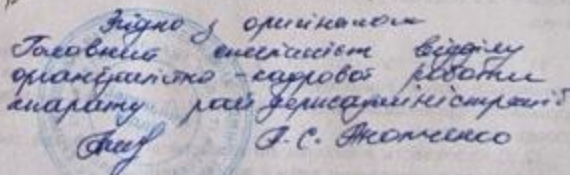 Згідно з оригіналом
Головний спеціаліст відділу
організаційно-кадрової роботи
апарату райдержадміністрації
А. С.